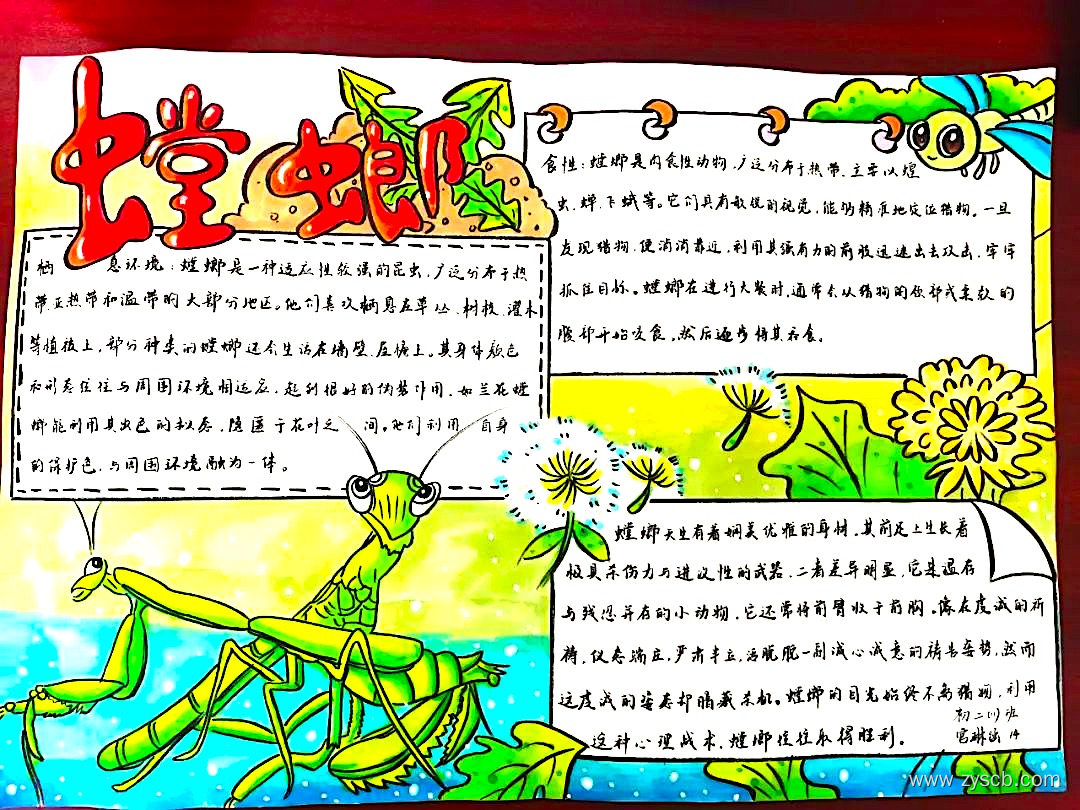 螳螂
栖息环境：螳螂是一种适应性较强的昆虫，广泛分布于热
带、亚热带和温带的大部分地区。他们喜欢栖息在草丛、树枝、灌木
等植被上，部分种类的螳螂还会生活在墙壁、丘陵上。其身体颜色
和形态往往与周围环境相适应，起到很好的伪装作用，如兰花螳
螂能利用其出色的拟态，隐匿于花叶之间。他们利用自身
的保护色，与周围环境融为一体。
食性：螳螂是肉食性动物，广泛分布于热带，主要以蝗
虫、蝉、飞蛾等。它们具有敏锐的视觉，能够精准地定位猎物。一旦
发现猎物，便消消靠近，利用其强有力的前肢迅速出去攻击，牢牢
抓住目标。螳螂在进行大餐时，通常会从猎物的颈部或柔软的
腹部开始咬食，然后逐步将其吞食。
螳螂天生有着娴美优雅的身材，其前足上生长着
极具杀伤力与进攻性的武器，二者差异明显，它是温存
与残忍并存的小动物，它还常将前臂收于前胸。像在虔诚的祈
祷，仪态端庄，严肃半立，活脱脱一副诚心诚意的祷告姿势，然而
这虔诚的姿态却暗藏杀机。螳螂的目光始终不离猎物，利用
这种心理战术，螳螂往往取得胜利。
初二(1)班
www.zyscb.com